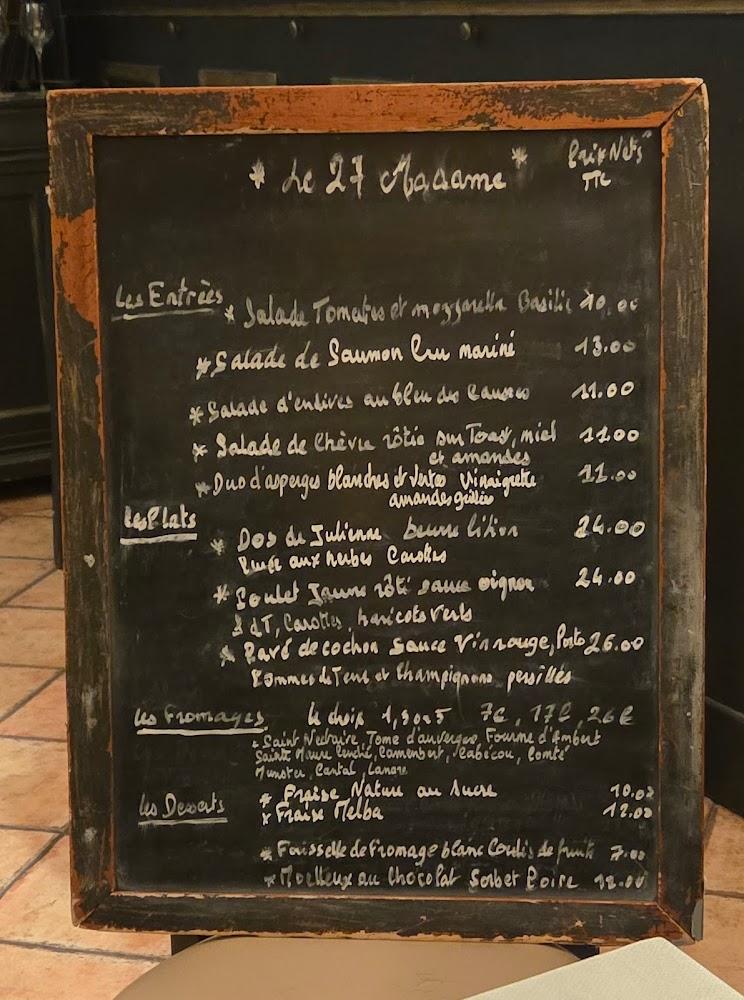 * Le 27 Madame * Prix Nets
TTC
Les Entrées
* Salade Tomates et mozzarella Basilic 10.00
* Salade de Saumon Cru mariné 13.00
* Salade d'endives au bleu des Causses 11.00
* Salade de Chèvre rôtie sur Toast, miel 11.00
et amandes
* Duo d'asperges blanches et vertes Vinaigrette 11.00
amandes grillées
Les Plats
* Dos de Julienne beurre citron 24.00
Purée aux herbes Carottes
* Poulet Jaune rôti sauce oignon 24.00
P d T, Carottes, haricots verts
* Pavé de cochon Sauce Vin rouge, Porto 26.00
Pommes de Terre et Champignons persillés
Les Fromages le choix 1, 3 ou 5 7€, 17€, 26€
* Saint Nectaire, Tome d'auvergne, Fourme d'Ambert
Sainte Maure Cendré, Camembert, Cabécou, Comté
Munster, Cantal,
Les Desserts
* Fraise Nature au Sucre 10.00
* Fraise Melba 12.00
* Faisselle de Fromage blanc Coulis de fruits 7.00
* Moelleux au Chocolat Sorbet Poire 12.00